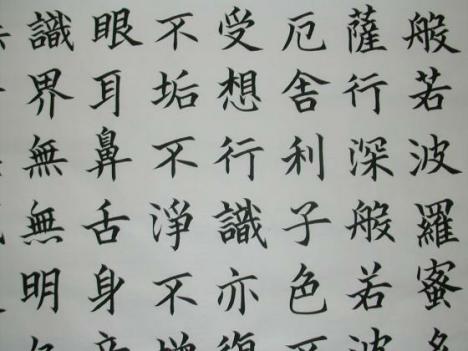 般若波羅蜜多
薩行深般若波
厄舍利子色不
受想行識亦復
不垢不淨不增
眼耳鼻舌身意
識界無無明亦